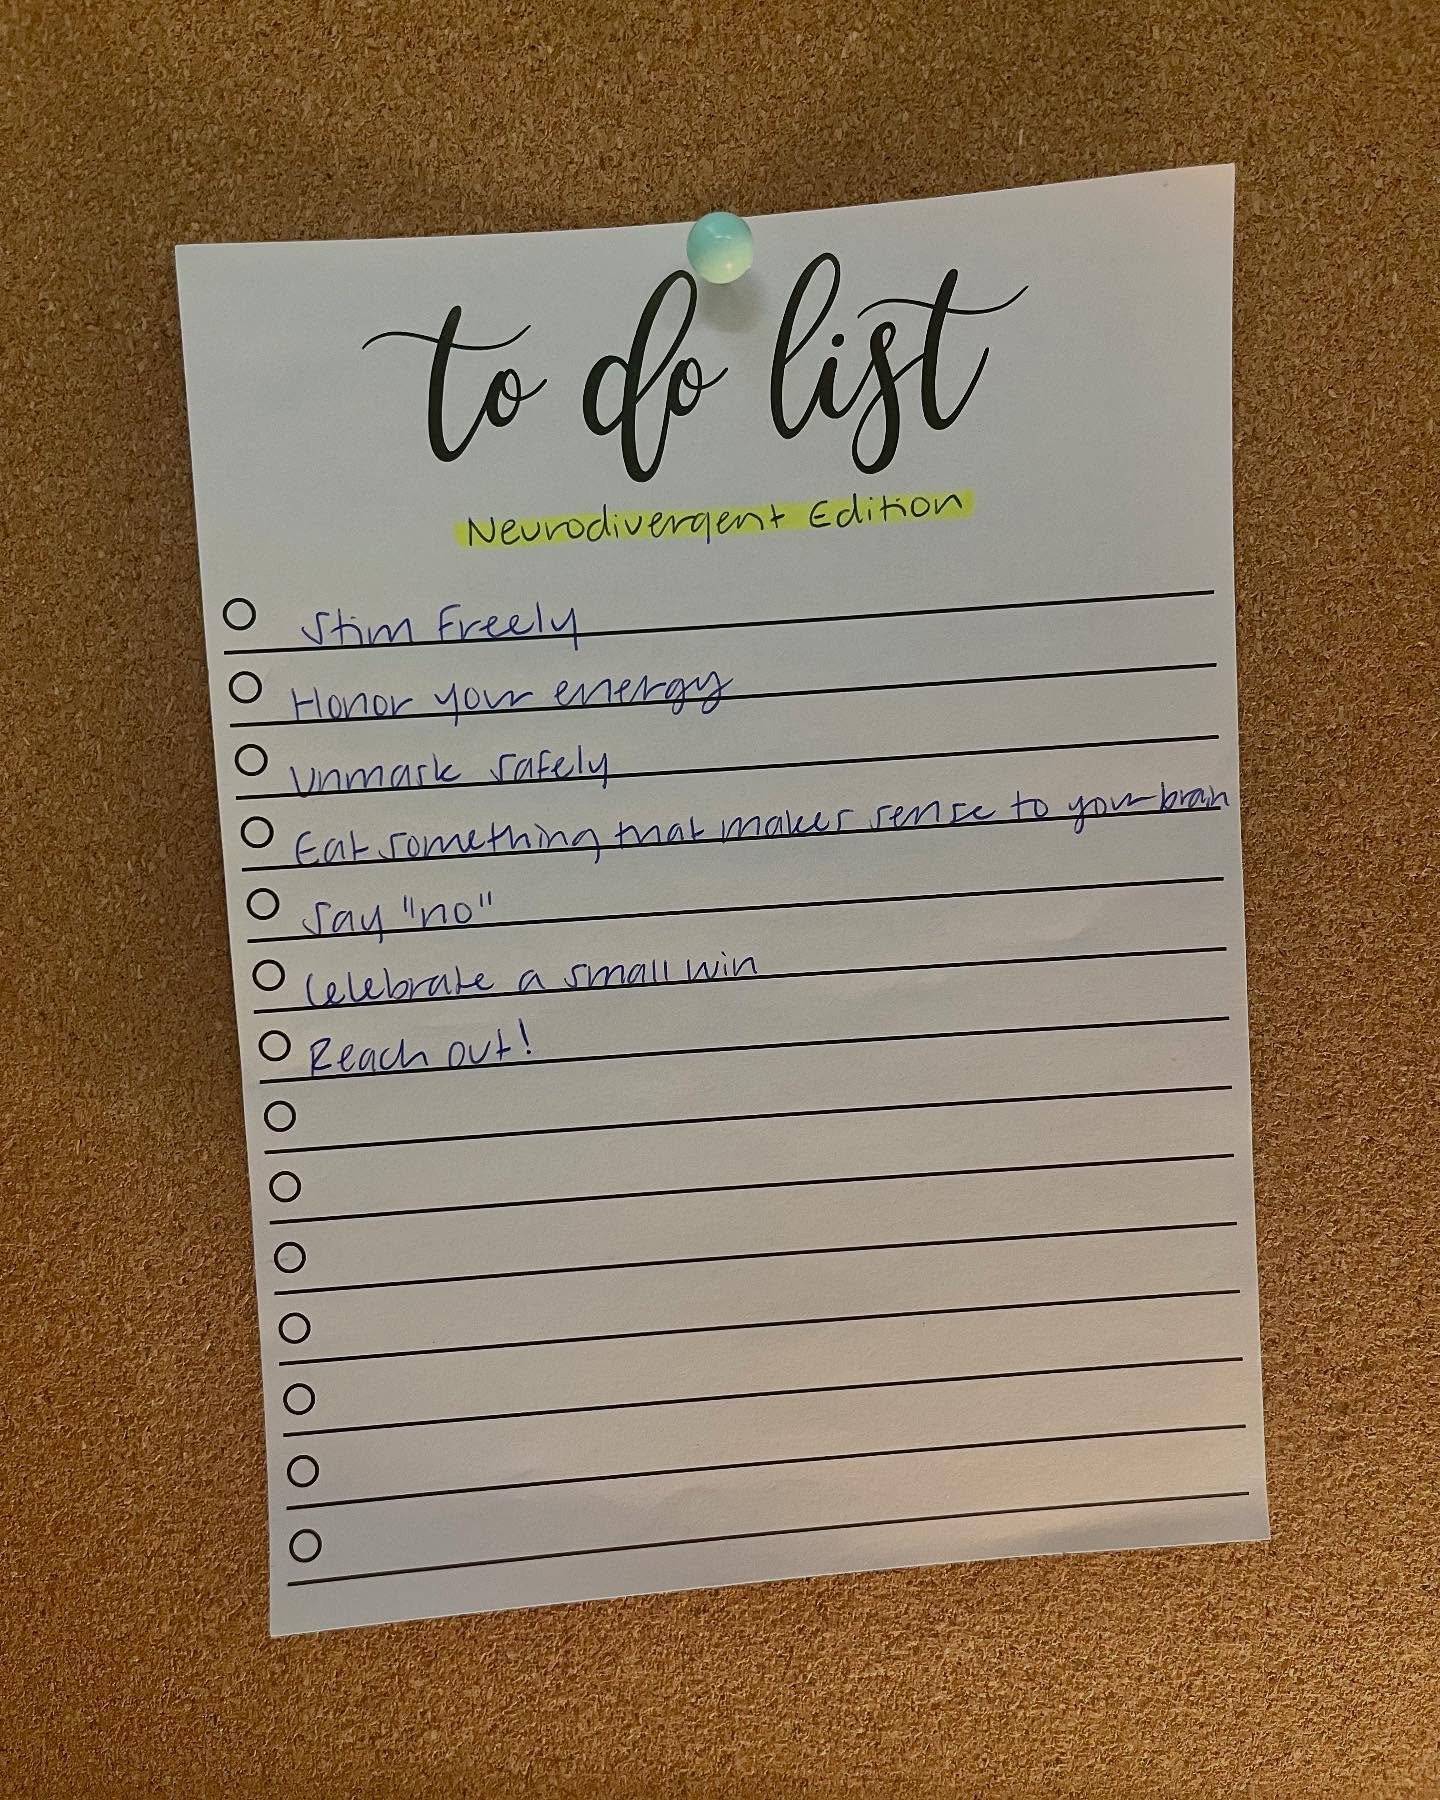 to do list
Neurodivergent Edition
Stim Freely
Honor your energy
Unmask safely
Eat something that makes sense to your brain
Say "no"
Celebrate a small win
Reach out!